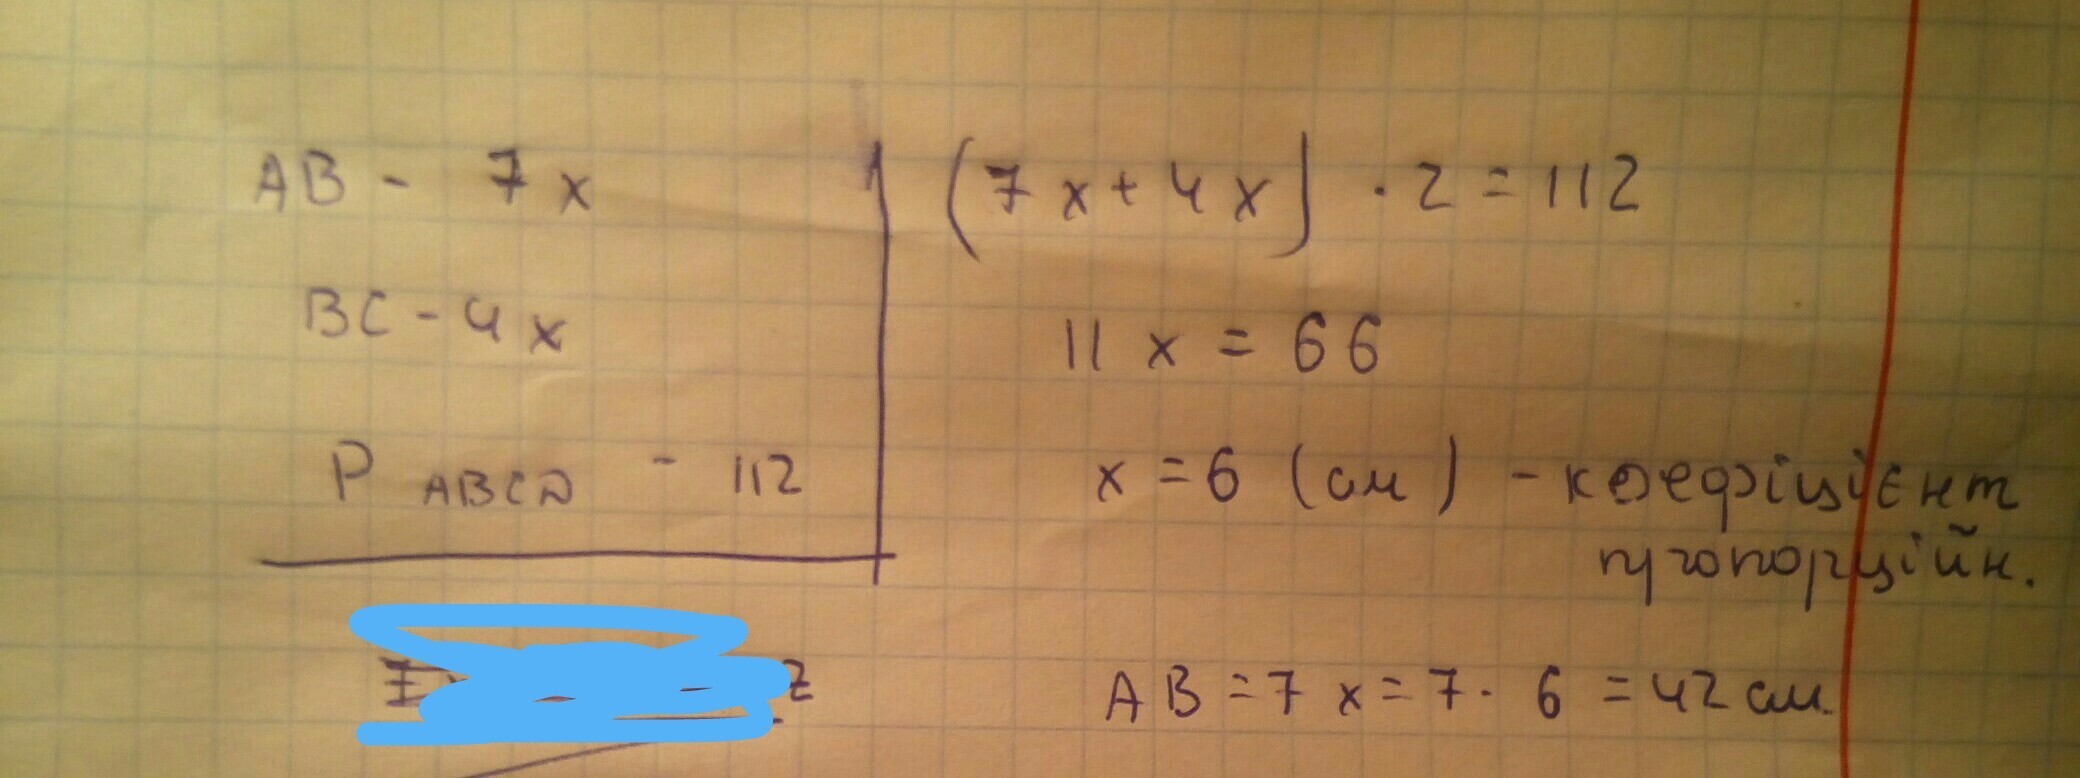 AB - 7x
BC - 4x
P ABCD - 112
(7x + 4x) · 2 = 112
11 x = 66
x = 6 (см) - коефіцієнт
пропорційн.
AB = 7x = 7 · 6 = 42 см.